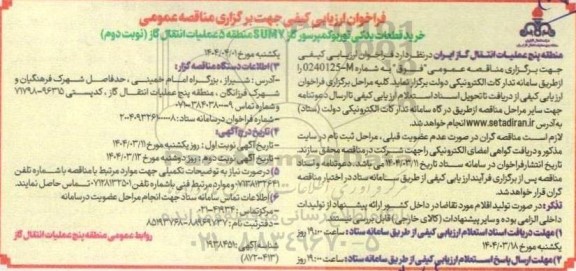 فراخوان ارزیابی کیفی جهت برگزاری مناقصه عمومی
خرید قطعات یدکی توربوکمپرسور گاز SUMY منطقه ۵ عملیات انتقال گاز (نوبت دوم)
منطقه پنج عملیات انتقال گاز ایران در نظر دارد فراخوان ارزیابی کیفی
جهت برگزاری مناقصه عمومی "فوق" به شماره 0240125-M را
از طریق سامانه تدارکات الکترونیکی دولت برگزار نماید. کلیه مراحل برگزاری فراخوان
ارزیابی کیفی از دریافت تا تحویل اسناد استعلام ارزیابی کیفی تا ارسال دعوتنامه
جهت سایر مراحل مناقصه از طریق درگاه سامانه تدارکات الکترونیکی دولت (ستاد)
به آدرس www.setadiran.ir انجام خواهد شد.
لازم است مناقصه گران در صورت عدم عضویت قبلی، مراحل ثبت نام در سایت
مذکور و دریافت گواهی امضای الکترونیکی را جهت شرکت در مناقصه محقق سازند.
تاریخ انتشار فراخوان در سامانه ستاد تاریخ ۱۴۰۴/۰۳/۱۱ می باشد. اسناد
مناقصه پس از برگزاری فرآیند ارزیابی کیفی از طریق سامانه ستاد در اختیار مناقصه
گران قرار خواهد شد.
تذکر: در صورت تولید اقلام مورد تقاضا در داخل کشور ارائه پیشنهاد از تولیدات
داخلی الزامی بوده و سایر پیشنهادات (کالای خارجی) قابل پذیرش
۱) مهلت دریافت اسناد استعلام ارزیابی کیفی از طریق سامانه ستاد: ساعت ۱۹:۰۰ روز
یکشنبه مورخ ۱۴۰۴/۰۳/۱۸
۲) مهلت ارسال پاسخ استعلام ارزیابی کیفی از طریق سامانه ستاد: ساعت ۱۹:۰۰ روز
یکشنبه مورخ ۱۴۰۴/۰۴/۰۱
۳) اطلاعات دستگاه مناقصه گزار:
-آدرس: شیراز، بزرگراه امام خمینی، حدفاصل شهرک فرهنگیان و
شهرک فرزانگان، منطقه پنج عملیات انتقال گاز، کدپستی ۹۶۳۵-۷۱۷۹۸
و شماره تماس ۰۷۱-۳۸۴۰۳۸۰۰۰۹
-شماره فراخوان در سامانه ستاد: ۲۰۰۴۰۹۳۲۶۶۰۰۰۰۰۸
۴) تاریخ درج آگهی:
- تاریخ آگهی نوبت اول: روز یکشنبه مورخ ۱۴۰۴/۰۳/۱۱
- تاریخ آگهی نوبت دوم: روز دوشنبه مورخ ۱۴۰۴/۰۳/۱۲
۵) در صورت نیاز به توضیحات تکمیلی جهت موارد مرتبط با مناقصه با شماره تلفن
و موارد مرتبط فنی با شماره تلفن ۰۷۱۳۸۱۳۲۵۱ تماس حاصل نمایند.
۶) اطلاعات تماس سامانه ستاد جهت انجام مراحل عضویت در سامانه
- مرکز تماس: ۴۱۹۳۴-۰۲۱
- دفتر ثبت نام: ۸۸۹۶۹۷۳۷ و ۸۵۱۹۳۷۶۸
شناسه آگهی: ۱۹۳۸۴۵۱
روابط عمومی منطقه پنج عملیات انتقال گاز
۰۲۱-۸۸۳۴۹۶۷۰-۵